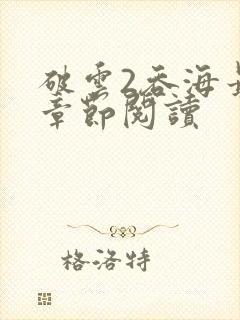 破雲2吞海最
章節閱讀
格洛特